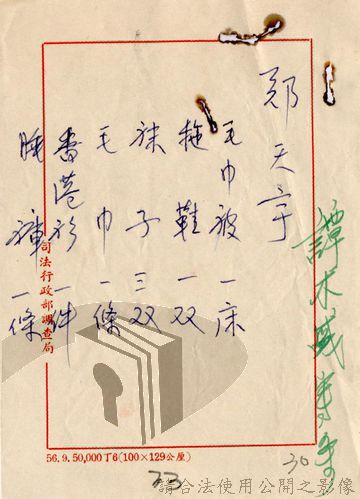 鄭天宇
毛巾被 一床
拖鞋 一双
袜子 三双
毛巾 一條
香港衫 一件
睡褲 一條
司法行政部調查局
56.9.50,000丁6(100×129公厘)
30
73
請合法使用公開之影像